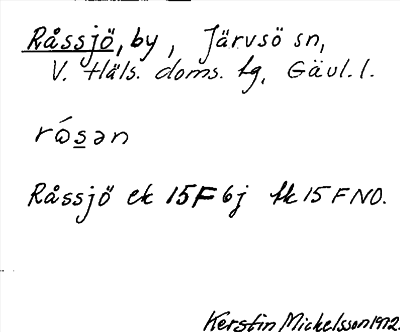 Råssjö, by, Järvsö sn,
V. Häls. doms. tg, Gävl. l.
rώs̲ən
Råssjö ek 15F6j tk 15 F NO.
Kerstin Mickelsson 1972.